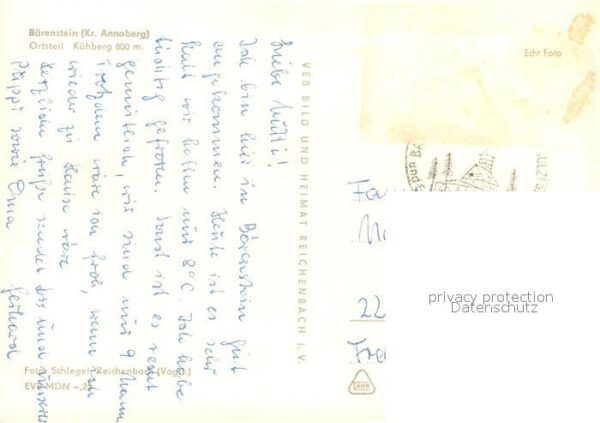 Bärenstein (Kr. Annaberg)
Ortsteil Kühberg 800 m.
Liebe Mutti!
Ich bin hier in Bärenstein gut
angekommen. Heute ist es sehr
kalt wir hatten nur 8°C. Ich habe
tüchtig gefroren. Sonst ist es recht
gemütlich, wir sind nur 9 Mann
Trotzdem wäre ich froh, wenn ich
wieder zu Hause wäre
Herzliche Grüße sendet Dir und
Püppi sowie Oma
Gerhard
Foto Schlegel, Reichenbach (Vogtl.)
EVP MDN -,20
VEB BILD UND HEIMAT REICHENBACH I. V.
Echt Foto
22
privacy protection
Datenschutz